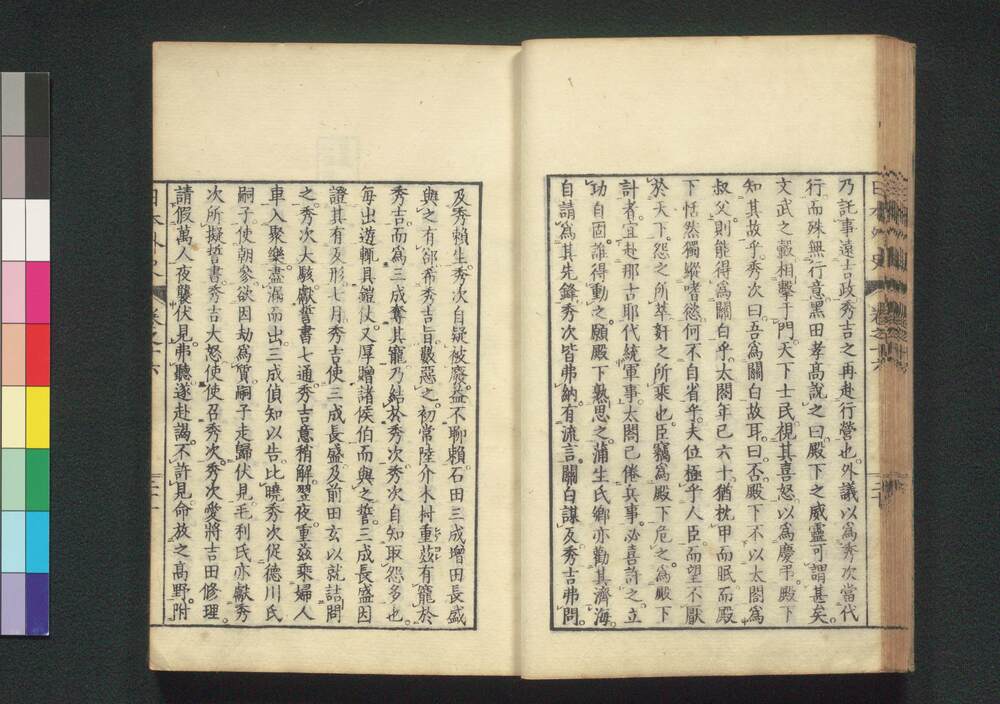 乃託事遠古政秀吉之再赴行營也外議以爲秀次當代
行而殊無行意黒田孝髙說之曰殿下之威靈可謂甚矣
文武之轂相擊于門天下士民視其喜怒以爲慶弔殿下
知其故乎秀次曰吾爲關白故耳曰否殿下不以太閤爲
叔父則能得爲關白乎太閤年已六十猶枕甲而眠而殿
下恬然獨縱嗜慾何不自省乎夫位極乎人臣而望不厭
於天下怨之所萃奸之所乘也臣竊爲殿下危之爲殿下
計者宜赴那古耶代統軍事太閤已倦兵事必喜許之立
功自固誰得動之願殿下熟思之蒲生氏鄉亦勸其濟海
自請爲其先鋒秀次皆弗納有流言關白謀反秀吉弗問
及秀賴生秀次自疑被廢益不聊賴石田三成增田長盛
與之有郤希秀吉旨觳惡之初常陸介木村重茲有寵於
秀吉而爲三成奪其寵乃結於秀次秀次自知取怨多也
每出遊輒具鎧仗又厚贈諸侯伯而與之誓三成長盛因
證其有反形七月秀吉使三成長盛及前田玄以就詰問
之秀次大駭獻誓書七通秀吉意稍解翌夜重茲乘婦人
車入聚樂盡漏而出三成偵知以告比曉秀次促德川氏
嗣子使朝參欲因劫爲質嗣子走歸伏見毛利氏亦獻秀
次所擬誓書秀吉大怒使使召秀次秀次愛將吉田修理
請假萬人夜襲伏見弗聽遂赴謁不許見命放之髙野附
日本外史 卷之十六